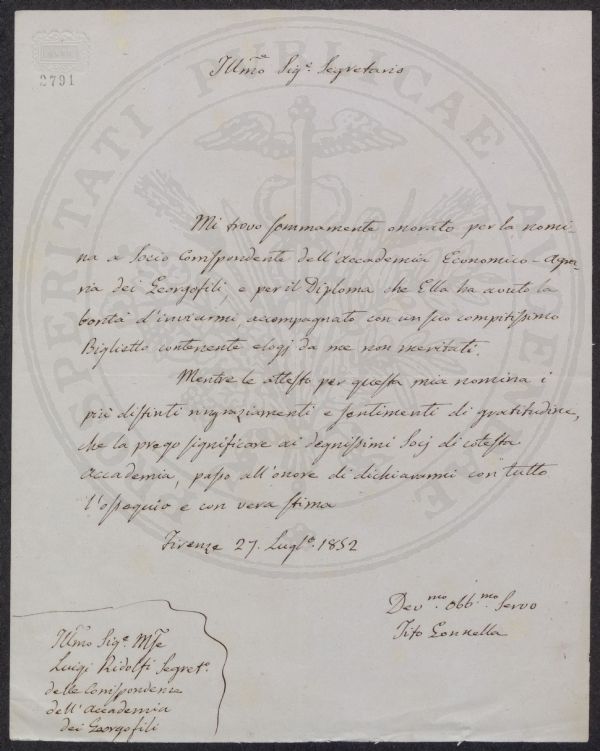 2791
PROSPERITATI PUBLICAE AUGENDAE
Ill.mo Sig.e Segretario
Mi trovo sommamente onorato per la nomi-
na a Socio Corrispondente dell'Accademia Economico-Agra-
ria dei Georgofili e per il Diploma che Ella ha avuto la
bontà d'inviarmi, accompagnato con un suo compitissimo
Biglietto contenente elogj da me non meritati.
Mentre le attesto per questa mia nomina i
più distinti ringraziamenti e sentimenti di gratitudine,
che la prego significare ai degnissimi Socj di cotesta
Accademia, passo all'onore di dichiararmi con tutto
l'ossequio e con vera stima
Firenze 27. Lugl.o 1852
Dev.mo Obb.mo Servo
Tito Gonnella
Ill.mo Sig.e M.se
Luigi Ridolfi Segret.o
delle Corrispondenze
dell'Accademia
dei Georgofili